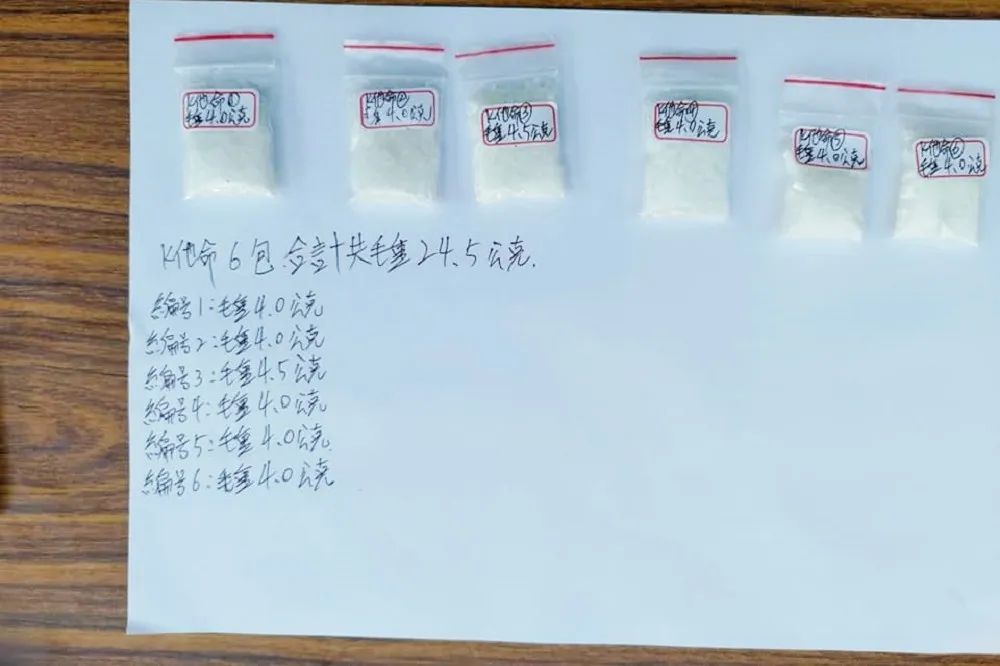 K他命①
毛重4.0公克
K他命②
毛重4.0公克
K他命③
毛重4.5公克
K他命④
毛重4.0公克
K他命⑤
毛重4.0公克
K他命⑥
毛重4.0公克
K他命6包 合計共毛重24.5公克.
編号1:毛重4.0公克
編号2:毛重4.0公克
編号3:毛重4.5公克
編号4:毛重4.0公克
編号5:毛重4.0公克.
編号6:毛重4.0公克